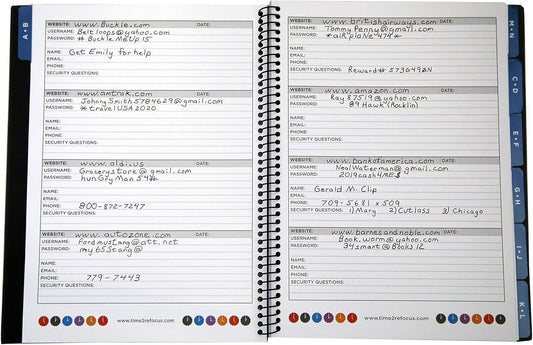 A • B
WEBSITE: www.Buckle.com DATE:
USERNAME: Beltloops@yahoo.com
PASSWORD: # Buckle MeUp.15
NAME: Get Emily for help
EMAIL:
PHONE:
SECURITY QUESTIONS:
WEBSITE: www.amtrak.com DATE:
USERNAME: JohnnySmith5784629@gmail.com
PASSWORD: *travelUSA2020
NAME:
EMAIL:
PHONE:
SECURITY QUESTIONS:
WEBSITE: www.aldi.us DATE:
USERNAME: Grocerystore@gmail.com
PASSWORD: hunGry Man 54#
NAME:
EMAIL:
PHONE: 800-872-7247
SECURITY QUESTIONS:
WEBSITE: www.autozone.com DATE:
USERNAME: Fordmustang@att.net
PASSWORD: my65stang@
NAME:
EMAIL:
PHONE: 779-7443
SECURITY QUESTIONS:
www.time2refocus.com
WEBSITE: www.britishairways.com DATE:
USERNAME: TommyPenny@gmail.com
PASSWORD: *aiRplaNe479*
NAME:
EMAIL:
PHONE:
SECURITY QUESTIONS: Reward# 573649ZN
WEBSITE: www.amazon.com DATE:
USERNAME: Ray87519@yahoo.com
PASSWORD: 89 Hawk (Rocklin)
NAME:
EMAIL:
PHONE:
SECURITY QUESTIONS:
WEBSITE: www.bankofamerica.com DATE:
USERNAME: NealWaterman@gmail.com
PASSWORD: 2019cash4ME$
NAME: Gerald M. Clip
EMAIL:
PHONE: 709-5681 x 509
SECURITY QUESTIONS: 1) Mary 2) Cutlass 3) Chicago
WEBSITE: www.barnesandnoble.com DATE:
USERNAME: Book.worm@yahoo.com
PASSWORD: 34smart@Books12
NAME:
EMAIL:
PHONE:
SECURITY QUESTIONS:
www.time2refocus.com
M • N
C • D
E • F
G • H
I • J
K • L